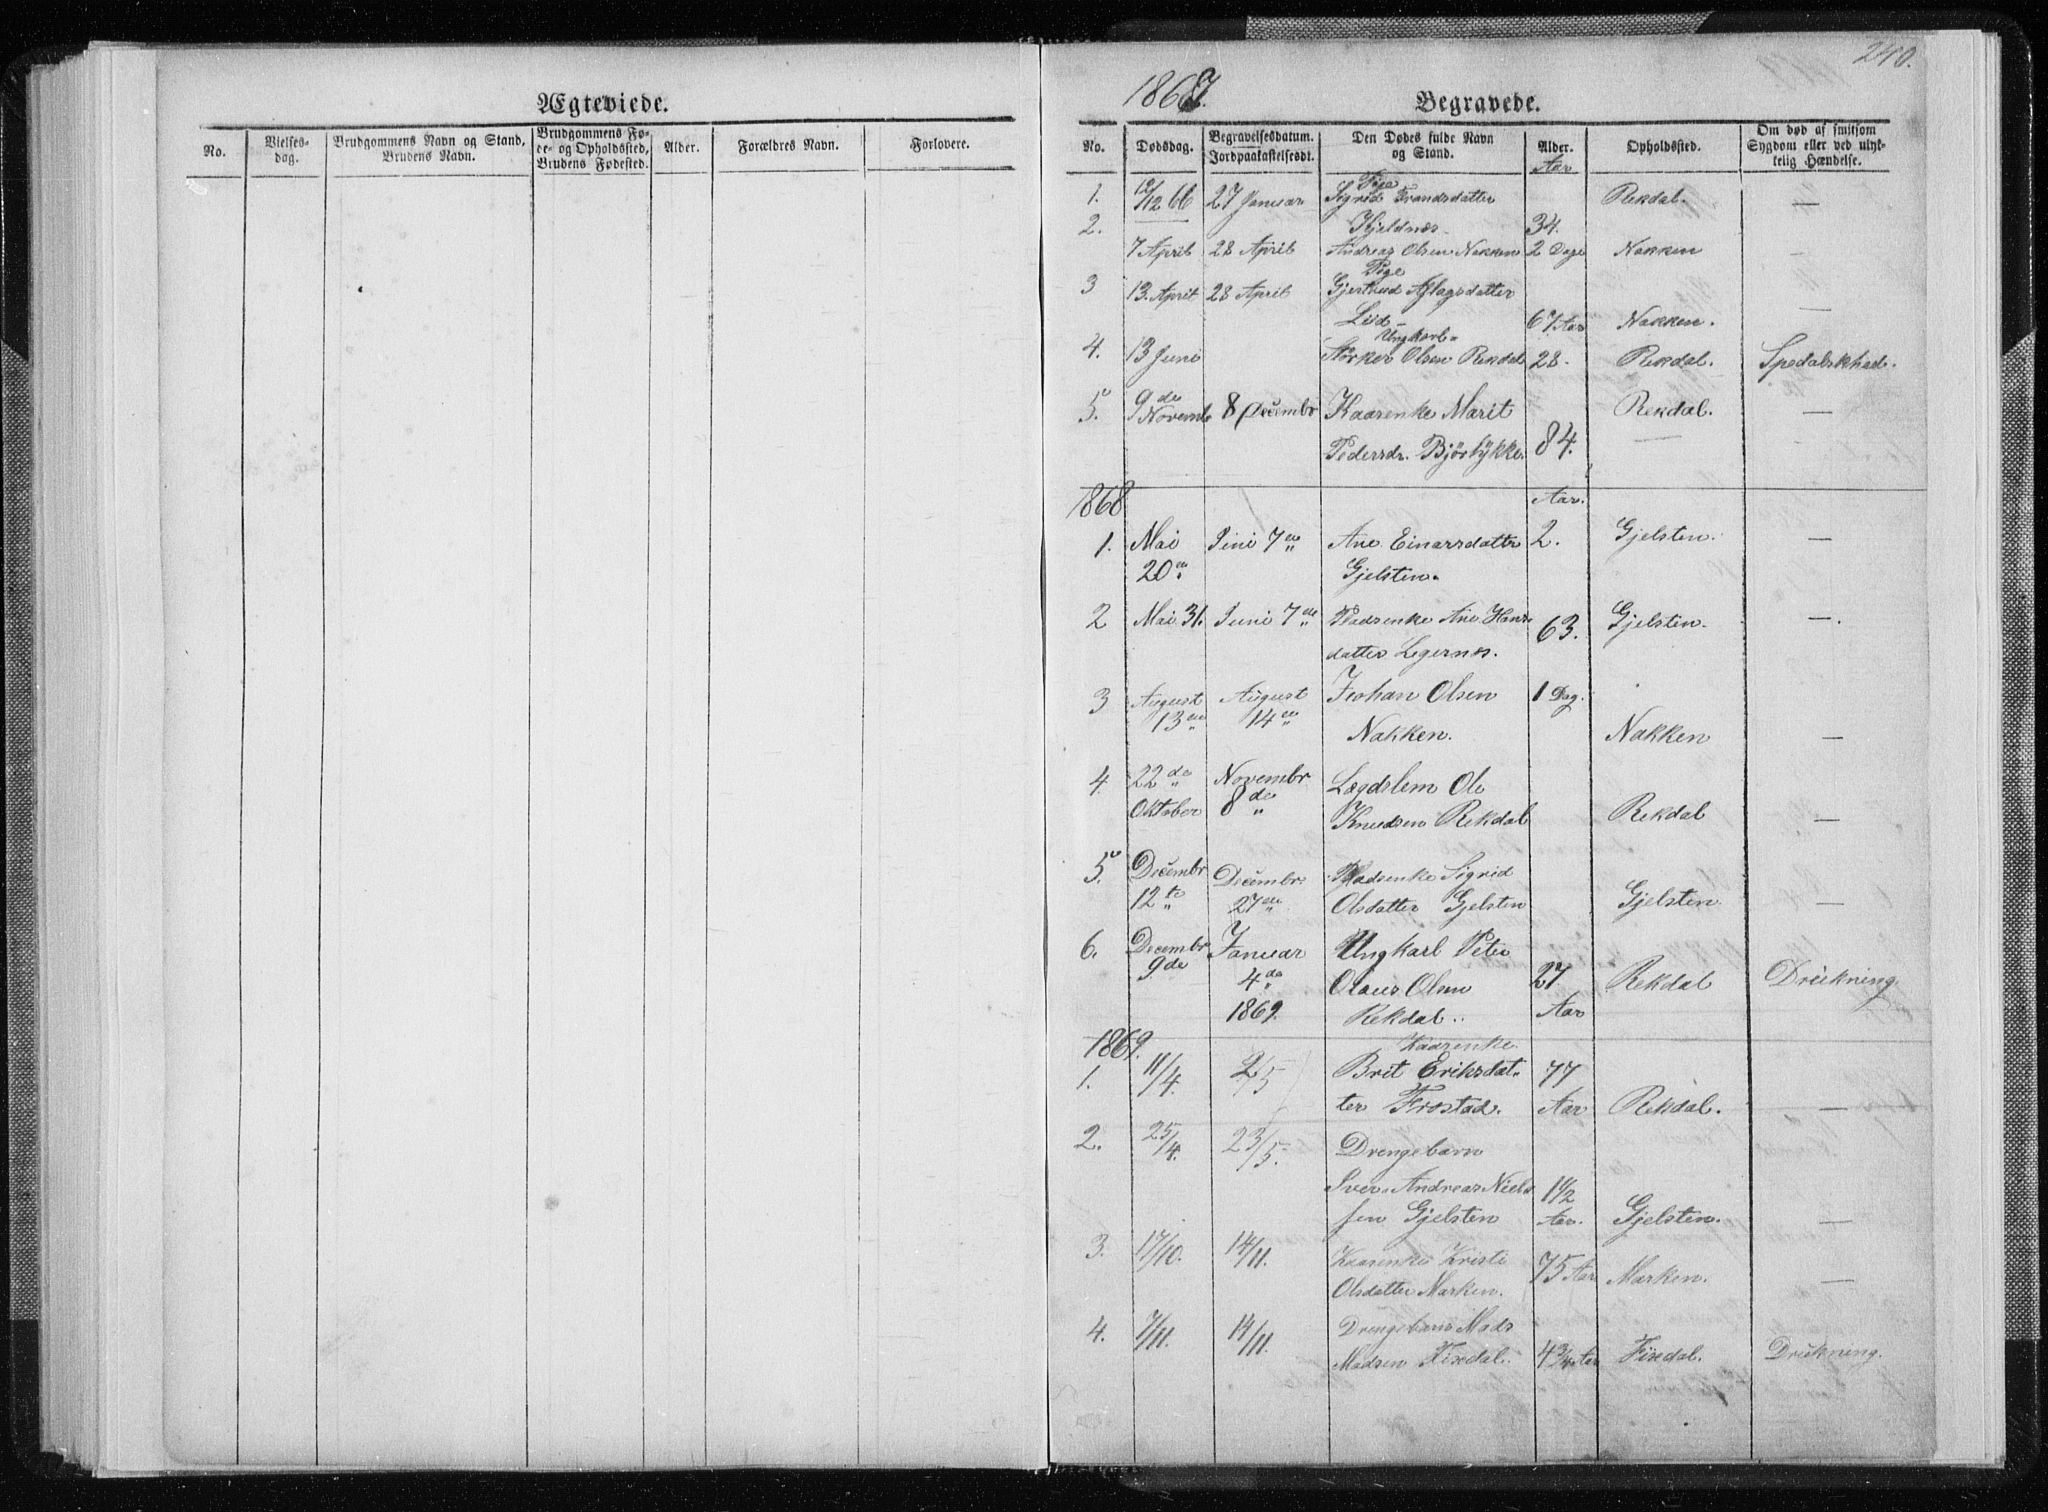 Ægteviede.
No.
Vielses-
dag.
Brudgommens Navn og Stand,
Brudens Navn.
Brudgommens Fø-
de- og Opholdssted,
Brudens Fødested.
Alder.
Forældres Navn.
Forlovere.
240.
1867.
Begravede.
No.
Dødsdag.
Begravelsesdatum.
Jordpaakastelsesdt.
Den Dødes fulde Navn
og Stand.
Alder.
Aar
Opholdssted.
Om død af smitsom
Sygdom eller ved ulyk-
kelig Hændelse.
Pige
1. /12 66 27 Januar Sigrid Trondsdatter Rekdal. —
2. Hjeldnæs 34.
7 April 28 April Andreas Olsen Nakken 2 Dage Nakken —
Pige
3 13. April 28 April Gjertrud Aslagsdatter
Liid 67 Aar Nakken. —
Ungkarl
4. 13 Juni Størker Olsen Rekdal 28. Rekdal. Spedalskhed.
5. 9de Novemb 8 Decembr Kaarenke Marit Rekdal. —
Pedersdr. Bjørlykke. 84.
1868 Aar.
1. Mai Juni 7de Ane Einarsdatter 2. Gjelsten. —
20de Gjelsten.
2 Mai 31. Juni 7de Madsenke Ane Hans
datter Legernes. 63. Gjelsten. —.
3 August August Johan Olsen 1 Dag.
13de 14de Nakken. Nakken —
4. 22de Novembr Lægdslem Ole
Oktober 8de Knudsen Rekdal Rekdal —
5. Decembr Decembr Madsenke Sigrid
12te 27de Olsdatter Gjelsten Gjelsten —
6. Decembr Januar Ungkarl Peter
9de 4de Olaus Olsen 27 Rekdal Drukning.
1869. Rekdal. Aar
1869. Kaarenke
1. 11/4. 2/5 Brit Eriksdat- 77
ter Frostad. Aar Rekdal. —
2. 25/4. 23/5. Drengebarn
Iver Andreas Niel- 1 1/2
sen Gjelsten Aar. Gjelsten. —
3. 17/10. 14/11. Kaarenke Kristi
Olsdatter Marken. 75 Aar Marken. —
4. 7/11. 14/11. Drengebarn Mads
Madsen Fixdal. 4 3/4 Aar Fixdal. Drukning.